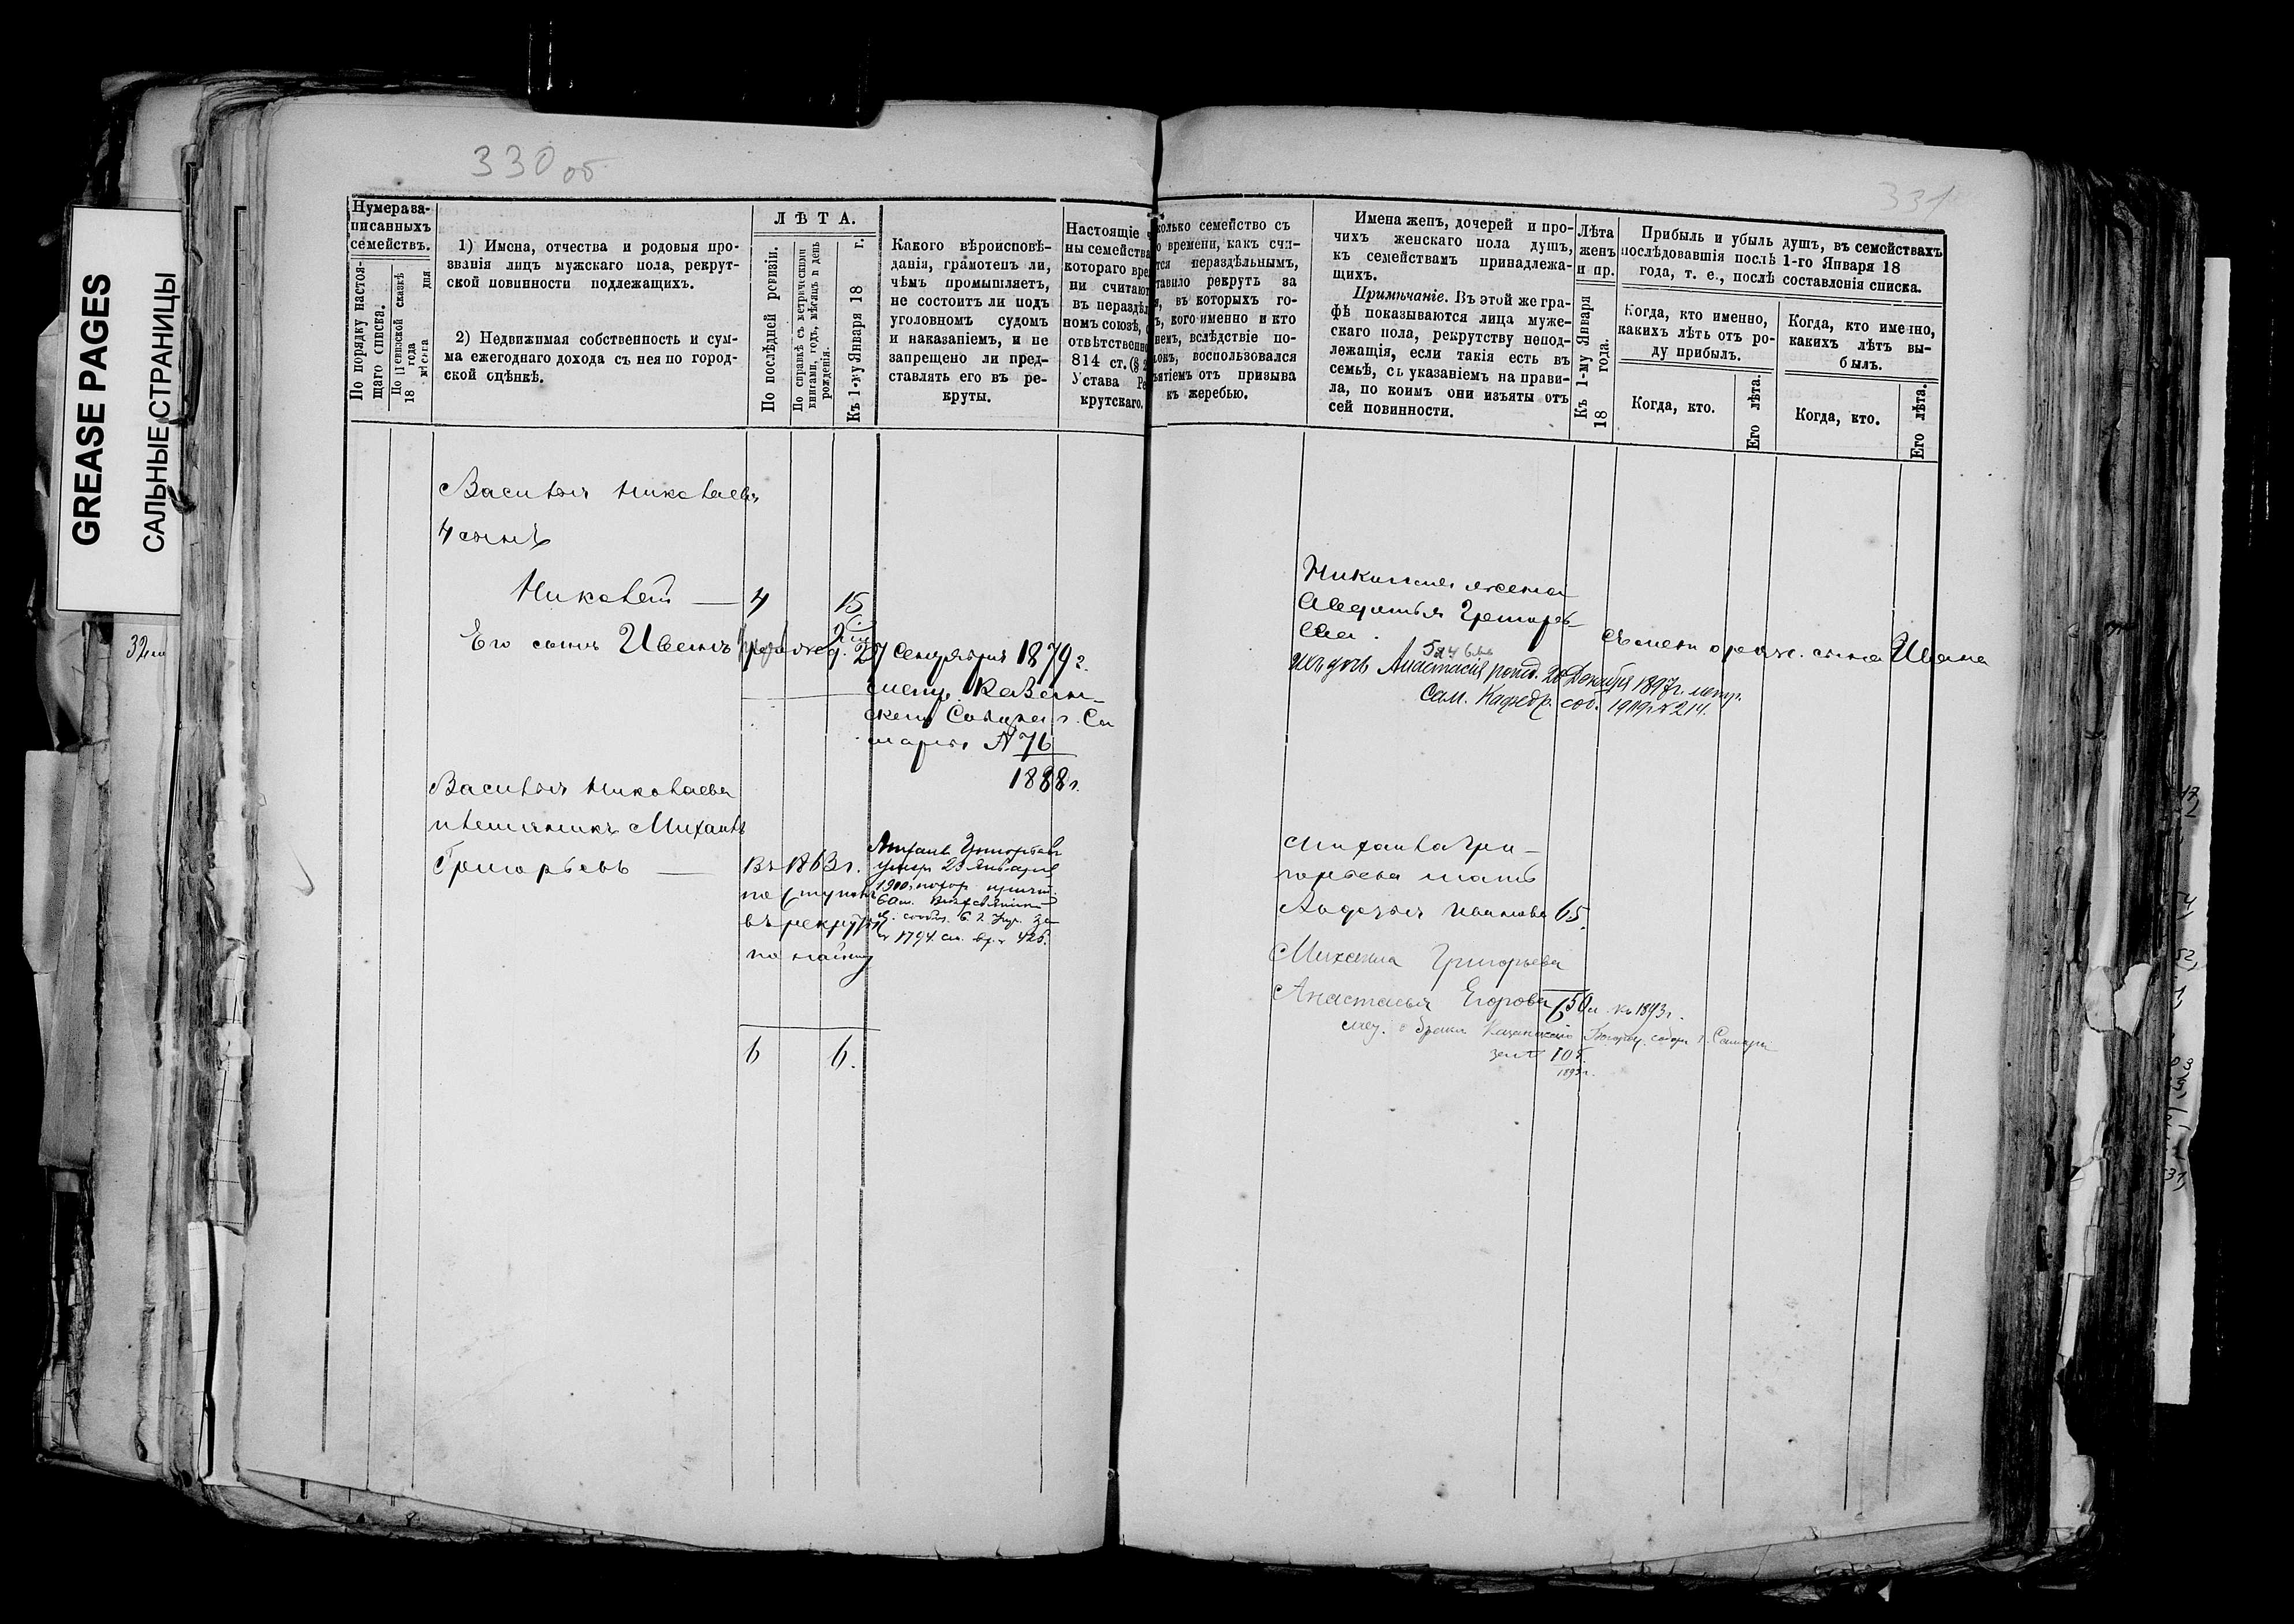 GREASE PAGES
САЛЬНЫЕ СТРАНИЦЫ
330 об
331
Нумера за-
писанныхъ
семействъ.
По порядку настоя-
щаго списка.
По ревизской сказкѣ
18 года
мѣсяца дня
1) Имена, отчества и родовыя про-
званія лицъ мужскаго пола, рекрут-
ской повинности подлежащихъ.
2) Недвижимая собственность и сум-
ма ежегоднаго дохода съ нея по город-
ской оцѣнкѣ.
ЛѢТА.
По послѣдней ревизіи.
По справкѣ съ метрическими
книгами, годъ, мѣсяцъ и день
рожденія.
Къ 1-му Января 18 г.
Какого вѣроисповѣ-
данія, грамотенъ ли,
чѣмъ промышляетъ,
не состоитъ ли подъ
уголовномъ судомъ
и наказаніемъ, и не
запрещено ли пред-
ставлять его въ ре-
круты.
Настоящіе
ны семейства
котораго вре
ни считают
въ нераздѣл
номъ союзѣ,
отвѣтственно
814 ст. (§ 2
Устава Ре
крутскаго.
колько семейство съ
о времени, какъ счи-
тся нераздѣльнымъ,
тавило рекрутъ за
я, въ которыхъ го-
ъ, кого именно и кто
немъ, вслѣдствіе по-
токъ, воспользовался
ъятіемъ отъ призыва
къ жеребью.
Имена женъ, дочерей и про-
чихъ женскаго пола душъ,
къ семействамъ принадлежа-
щихъ.
Примѣчаніе. Въ этой же гра-
фѣ показываются лица муже-
скаго пола, рекрутству непод-
лежащія, если такія есть въ
семьѣ, съ указаніемъ на прави-
ла, по коимъ они изъяты отъ
сей повинности.
Лѣта
женъ
и пр.
Къ 1-му Января
18 года.
Прибыль и убыль душъ, въ семействахъ
послѣдовавшія послѣ 1-го Января 18
года, т. е., послѣ составленія списка.
Когда, кто именно,
какихъ лѣтъ отъ ро-
ду прибылъ.
Когда, кто именно,
какихъ лѣтъ вы-
былъ.
Когда, кто.
Его лѣта.
Когда, кто.
Его лѣта.
Василья Николаева
4 сынъ
Николай — 4 15
Его сынъ Иванъ 27 Сентября 1879 г.
Казан-
скаго Собора г. Са
мары № 76
1888 г.
Василья Николаева
племянникъ Михаилъ
Григорьевъ — въ 1863 г.
поступилъ
въ рекруты
по найму
Михаилъ Григорьевъ
умер 23 Января
1900
6 6.
Николая жена
Авдотья Григорь-
ева.
о рожд. сына Ивана
ихъ дочь Анастасія род. 20 Декабря 1897 г. метр.
Сам. Кафедр. соб. № 214.
Михаила Гри-
горьева мать
Авдотья Иванова 65.
Михаила Григорьева
Анастасья Егорова 50 л. къ 1893 г.
о бракѣ Казанскаго собора г. Самары
32